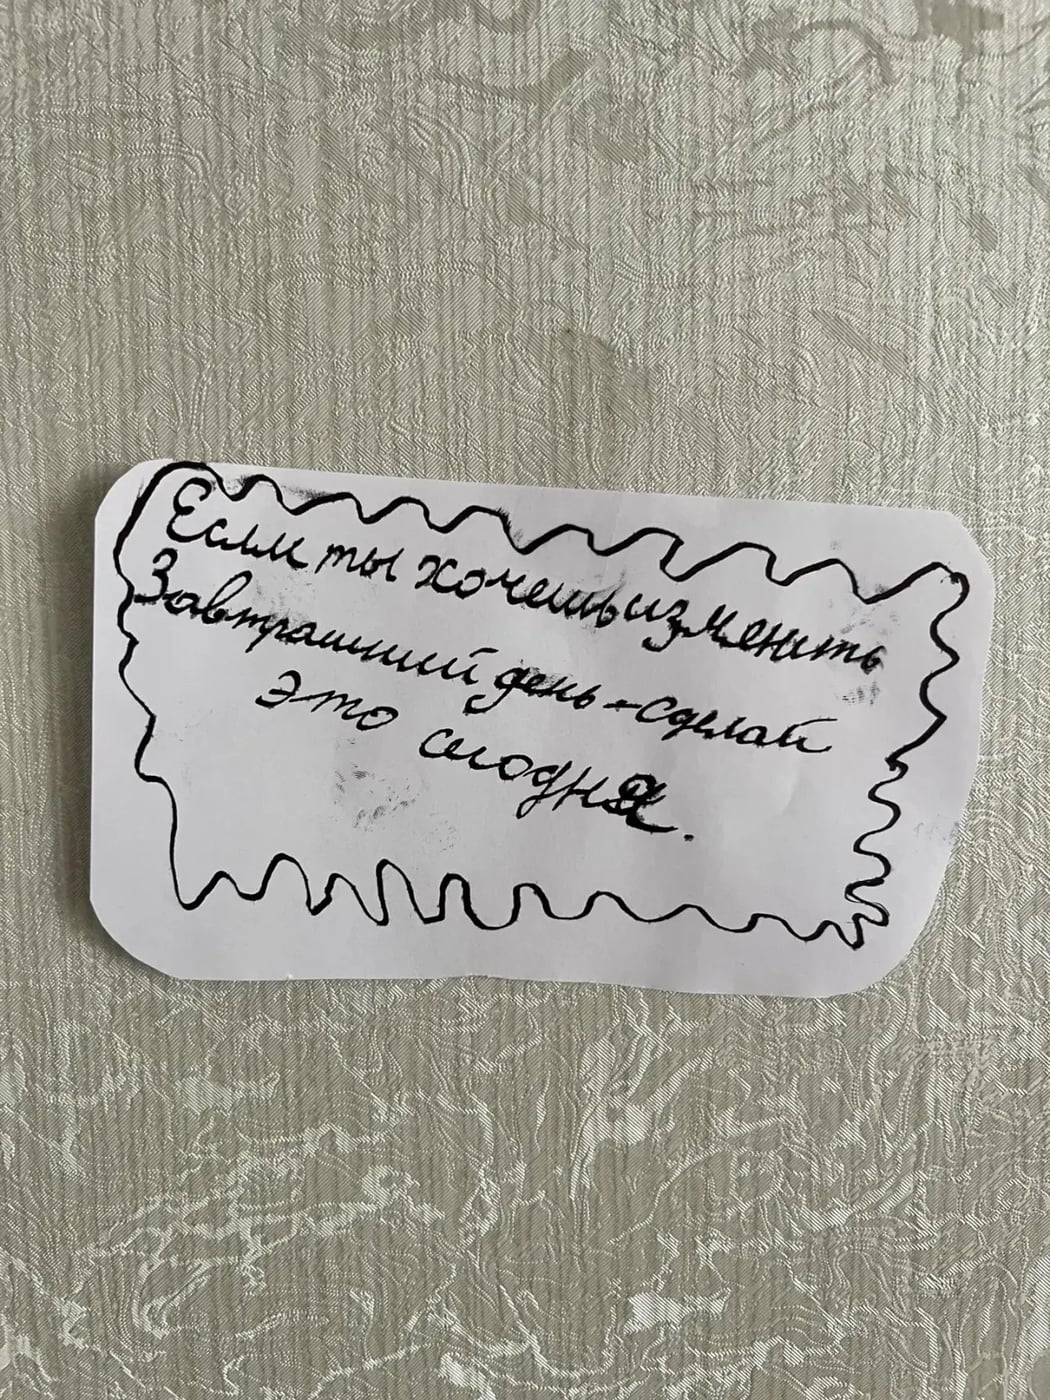 Если ты хочешь изменить
Завтрашний день - сделай
это сегодня.